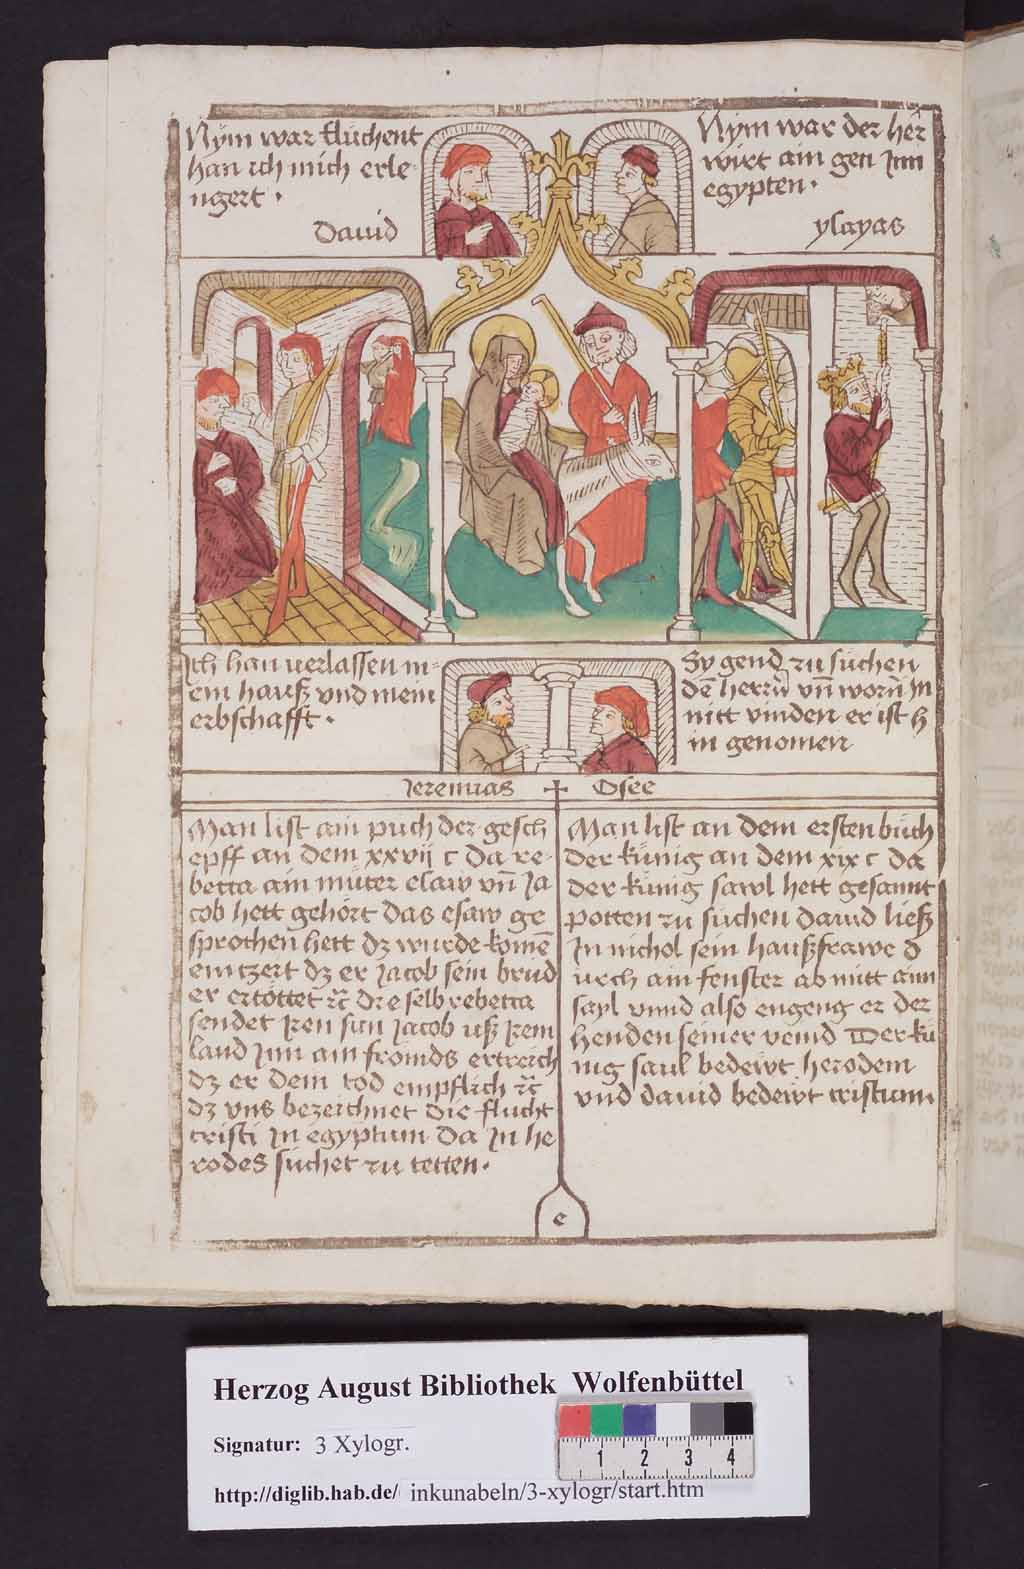 Nÿm war fluchent
han ich mich erle-
ngert .
David
Nÿm war der her
wirt ain gen Inn
egypten .
ysayas
Ich han verlassen m=
ein hauß vnd mein
erbschafft .
Sy gend zu suchen
dē herrn vn̄ worn̄ In
nitt vinden er ist h
in genomen
Jeremias + Osee
Man list ain puch der gesch
epff an dem xxvij c da re-
betta ain muter esaw vn̄ Ja
cob hett gehört das esaw ge
sprochen hett dz wurde komē
ein tzert dz er Jacob sein brud
er ertöttet ꝛc die selb rebetta
sendet Iren sun Jacob uß Irem
land Inn ain froinds ertreich
dz er dem tod empflich ꝛc
dz vns bezeichnet die flucht
cristi In egyptum da In he
rodes suchet zu tetten .
Man list an dem ersten buch
der künig an dem xix c da
der künig sawl hett gesannt
potten zu suchen david ließ
In nichol sein haußfrawe d
urch ain fenster ab mitt ainn
sayl vnnd also engeng er der
henden seiner veind Der kü
nig saul bedewt herodem
vnd david bedewt cristum .
e
Herzog August Bibliothek Wolfenbüttel
Signatur: 3 Xylogr.
1 2 3 4
http://diglib.hab.de/ inkunabeln/3-xylogr/start.htm